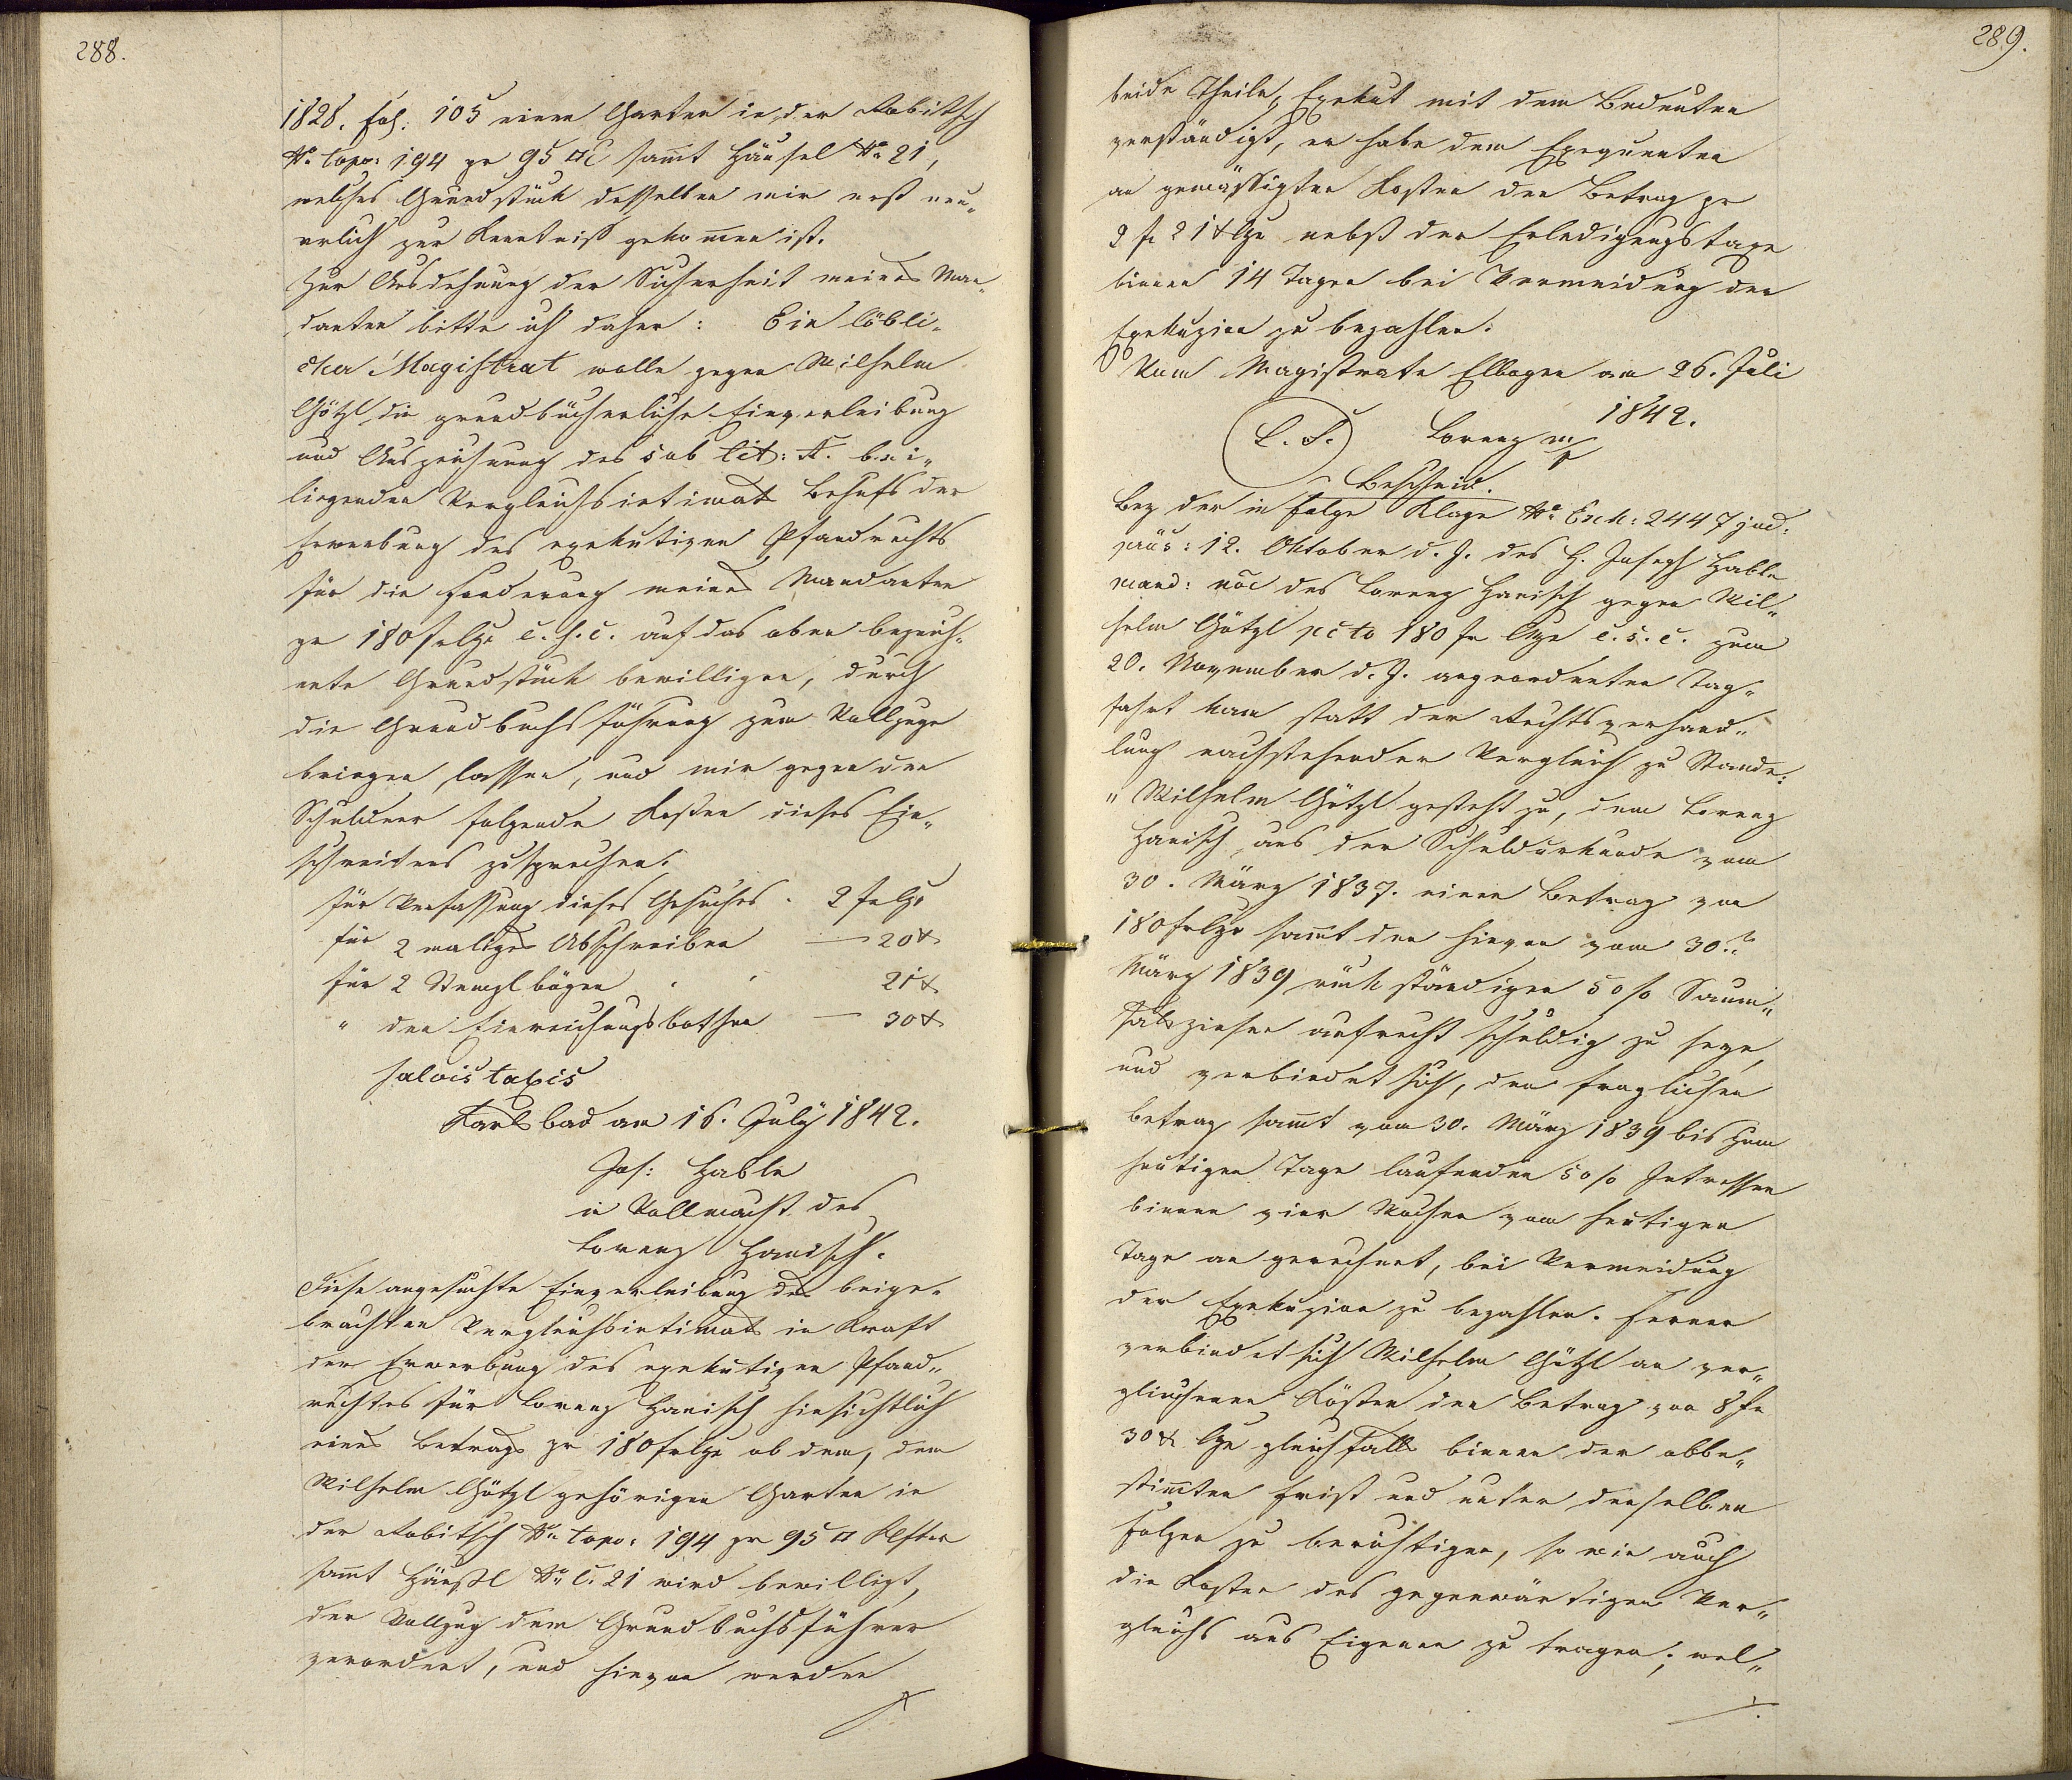 288.
1828. fol: 105 einen Garten in der Robitsch
No topo: 194 pr 95 □° sammt Häusel No 21,
welches Grundstück desselben mir erst neu„
erlich zur Kenntniß gekommen ist.
Zur Ausdehnung der Sicherheit meines Man„
danten bitte ich daher: Ein löbli„
cher Magistrat wolle gegen Wilhelm
Götzl die grundbücherliche Einverleibung
und Auszeichnung des sub lit: A. bei„
liegenden Vergleichsintimats Behufs der
Erwerbung des exekutiven Pfandrechts
für die Forderung meines Mandanten
pr 180 f c. s. c. auf das oben bezeich„
nete Grundstück bewilligen, durch
die Grundbuchsführung zum Vollzuge
bringen lassen, und mir gegen den
Schuldner folgende Kosten dieses Ein„
schreitens zusprechen.
für Verfassung dieses Gesuches . 2 f
für 2 maliges Abschreiben — 20 x
für 2 Stempl bögen . . 21 x
" den Einreichungsbothen — 30 x
salvis taxis
Karlsbad am 16. July 1842.
Jos: Hable
in Vollmacht des
Lorenz Hanisch.
Diese angesuchte Einverleibung des beige„
brachten Vergleichsintimats in Kraft
der Erwerbung des exekutiven Pfand„
rechtes für Lorenz Hanisch hinsichtlich
eines Betrags pr 180 f ob dem, dem
Wilhelm Götzl gehörigen Garten in
der Robitsch No topo: 194 pr 95 □ Klftr
sammt Häusl No C. 21 wird bewilligt,
der Vollzug dem Grundbuchsführer
verordnet, und hievon werden
289.
beide Theile, Exekut mit dem Bedeuten
verständigt, er habe dem Exequenten
an gemässigten Kosten den Betrag pr
2 f 21 x nebst der Erledigungstaxe
binnen 14 Tagen bei Vermeidung der
Exekuzion zu bezahlen.
Vom Magistrate Elbogen am 26. Juli
1842.
(L. S.) Lorenz m/p
Bescheid.
Bey der in Folge Klage No Exh: 2447 jud:
präs: 12. Oktober d. J. des H. Joseph Hable
mand: noe des Lorenz Hanisch gegen Wil„
helm Götzl pcto 180 f c. s. c. zum
20. November d. J. angeordneten Tag„
fahrt kam statt der Rechtsverhand„
lung nachstehender Vergleich zu Stande:
" Wilhelm Götzl gesteht zu, dem Lorenz
Hanisch aus der Schuldurkunde vom
30. März 1837. einen Betrag von
180 f sammt den hievon vom 30.
März 1839 rückständigen 5 o/o Saum„
salszinsen aufrecht schuldig zu seyn,
und verbindet sich, den fraglichen
Betrag sammt vom 30. März 1839 bis zum
heutigen Tage laufenden 5 o/o Intressen
binnen vier Wochen vom heutigen
Tage an gerechnet, bei Vermeidung
der Exekuzion zu bezahlen. Ferner
verbindet sich Wilhelm Götzl an ver„
glichenen Kösten den Betrag von 8 f
30 x gleichfalls binnen der obbe„
stimmten Frist und unter denselben
Folgen zu berichtigen, so wie auch
die Kosten des gegenwärtigen Ver„
gleichs aus Eigenen zu tragen; wel„